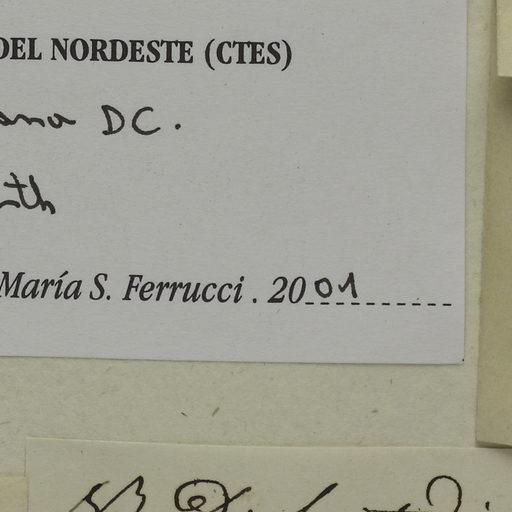 DEL NORDESTE (CTES)
ana DC.
nth
María S. Ferrucci . 2001